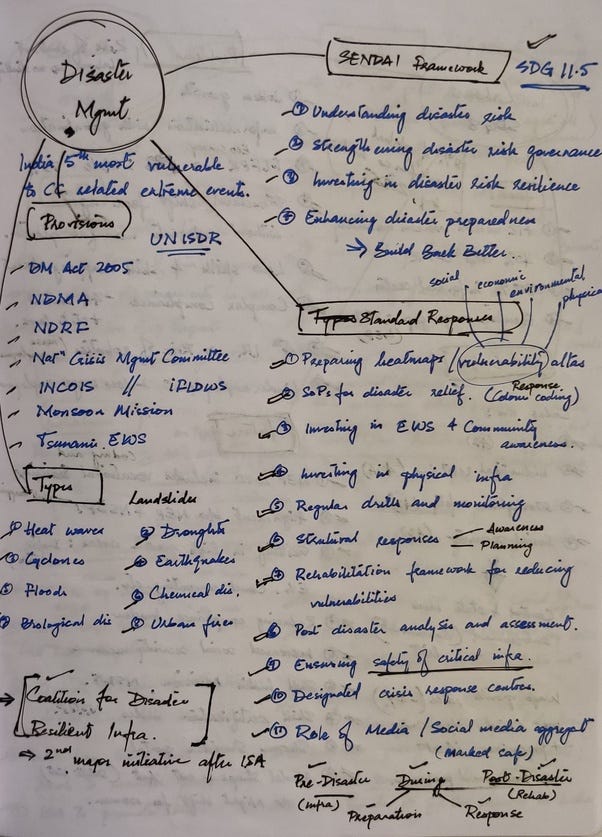 Disaster
Mgmt
SENDAI Framework
SDG 11.5
① Understanding disaster risk
② Strengthening disaster risk governance
③ Investing in disaster risk resilience
④ Enhancing disaster preparedness
→ Build Back Better.
India 5th most vulnerable
to CC related extreme events.
Provisions
UNISDR
- DM Act 2005
- NDMA
- NDRF
- Natn Crisis Mgmt Committee
- INCOIS // iFLOWS
- Monsoon Mission
- Tsunami EWS
Types
Landslides
① Heat waves
② Droughts
③ Cyclones
④ Earthquakes
⑤ Floods
⑥ Chemical dis.
⑦ Biological dis
⑧ Urban fires
→ [Coalition for Disaster
Resilient Infra.]
⇒ 2nd major initiative after ISA
Types Standard Responses
social economic environmental physical
① Preparing heatmaps / vulnerability atlas
Response
(Colour coding)
② SoPs for disaster relief.
③ Investing in EWS & Community
awareness.
④ Investing in physical infra
⑤ Regular drills and monitoring
⑥ Structural responses - Awareness
- Planning
⑦ Rehabilitation framework for reducing
vulnerabilities
⑧ Post disaster analysis and assessment.
⑨ Ensuring safety of critical infra.
⑩ Designated crisis response centres.
⑪ Role of Media / Social media aggregat
(marked safe)
Pre-Disaster During Post-Disaster
(Infra) (Rehab)
Preparation Response